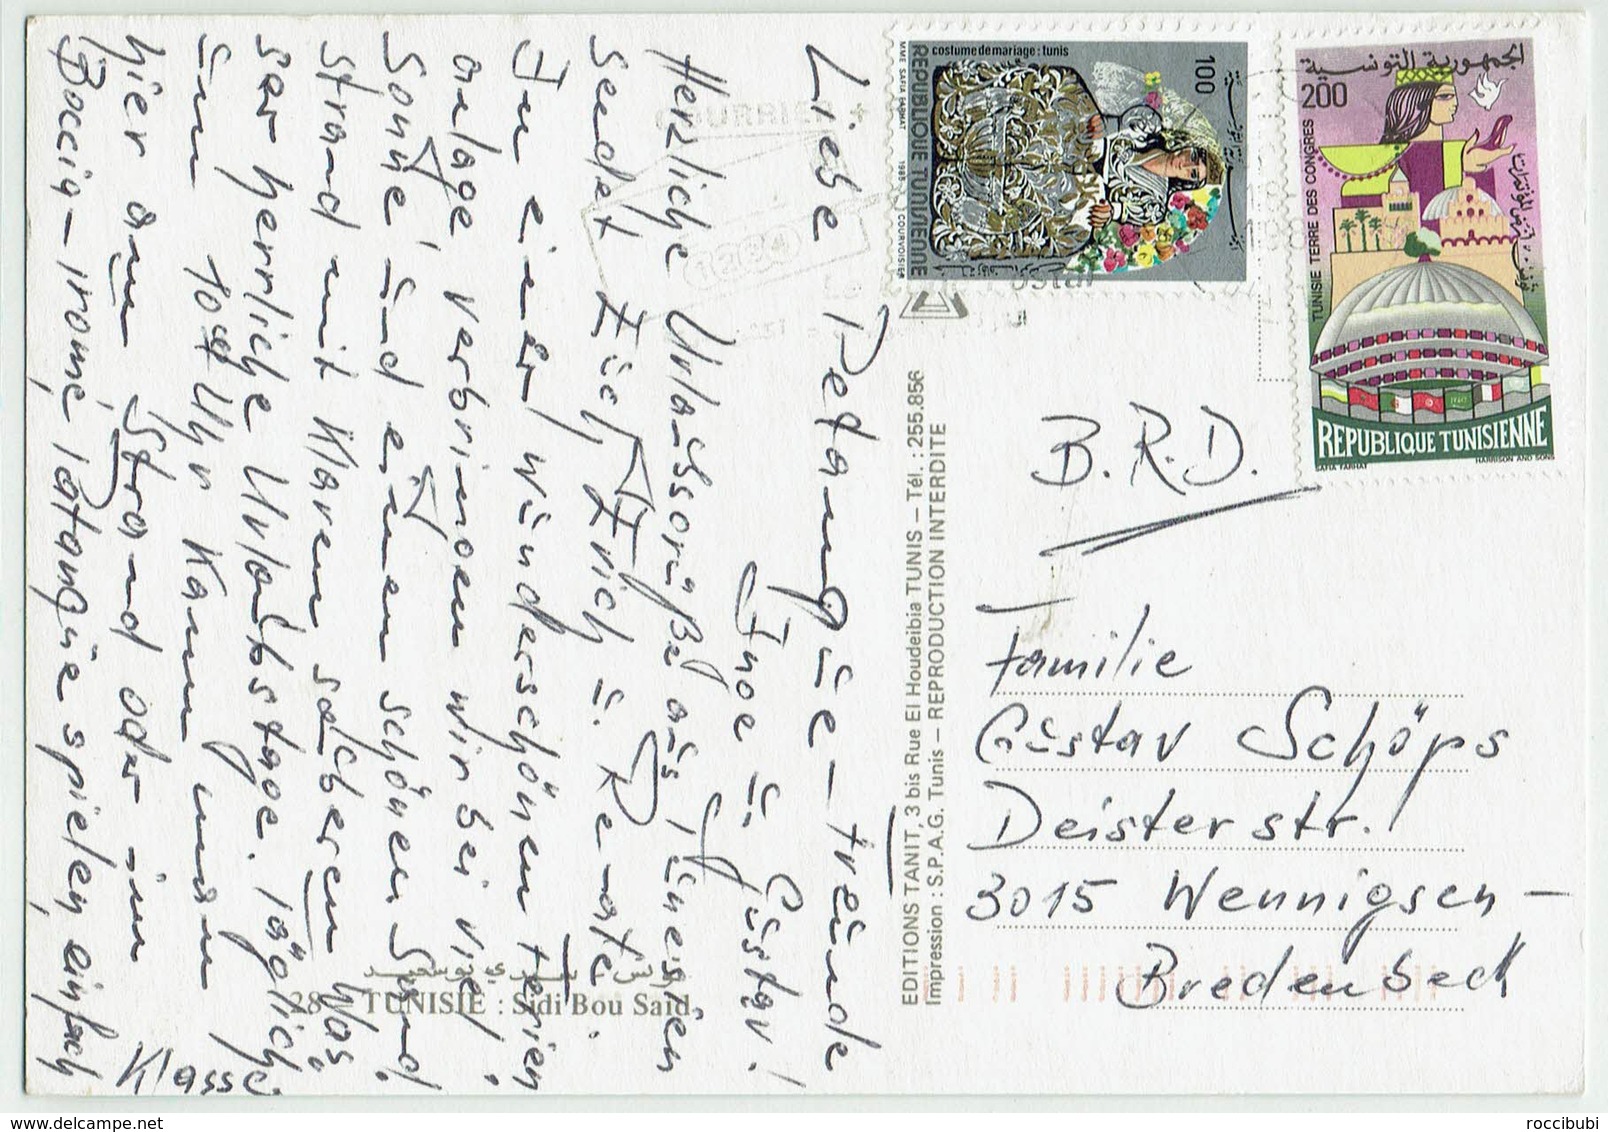 Liebe Petanque-Freunde
Herzliche Urlaubsgrüße aus Tunesien
sendet Euch Erich u. Renate
Inge u. Gustav!
In einer wunderschönen Ferien
anlage verbringen wir bei viel
Sonne und einen schönen Sand
strand mit klaren sauberen Was
ser herrliche Urlaubstage. Täglich
um 10 Uhr kann man
hier am Strand oder im
Boccia- Petanque spielen, einfach
Klasse
B.R.D.
Familie
Gustav Schöps
Deisterstr. 1
3015 Wennigsen-
Bredenbeck
28 - TUNISIE : Sidi Bou Said
EDITIONS TANIT, 3 bis Rue El Houdeibia TUNIS - Tél. : 255.856
Impression : S.P.A.G. Tunis - REPRODUCTION INTERDITE
costume de mariage : tunis
100
REPUBLIQUE TUNISIENNE
MME SAFIA FARHAT
1985
COURVOISIER
الجمهورية التونسية
200
TUNISIE TERRE DES CONGRES
تونس أرض المؤتمرات
REPUBLIQUE TUNISIENNE
SAFIA FARHAT
HARRISON AND SONS
delcampe.net
roccibubi